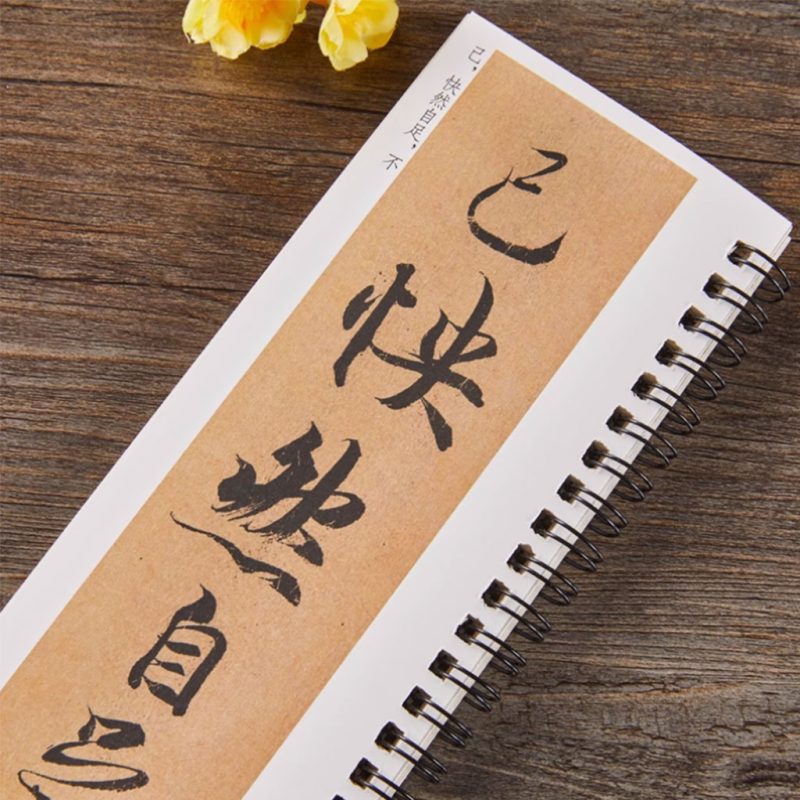 己，快然自足，不
己快然自足